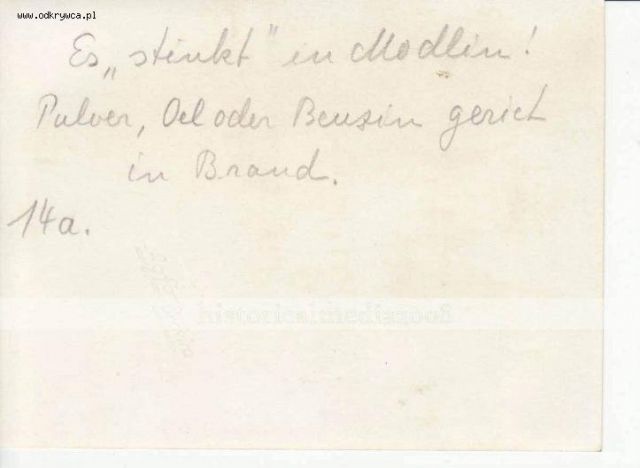 www.odkrywca.pl
Es „stinkt" in Modlin!
Pulver, Oel oder Benzin geriet
in Brand.
14a.
historicalmedia2008